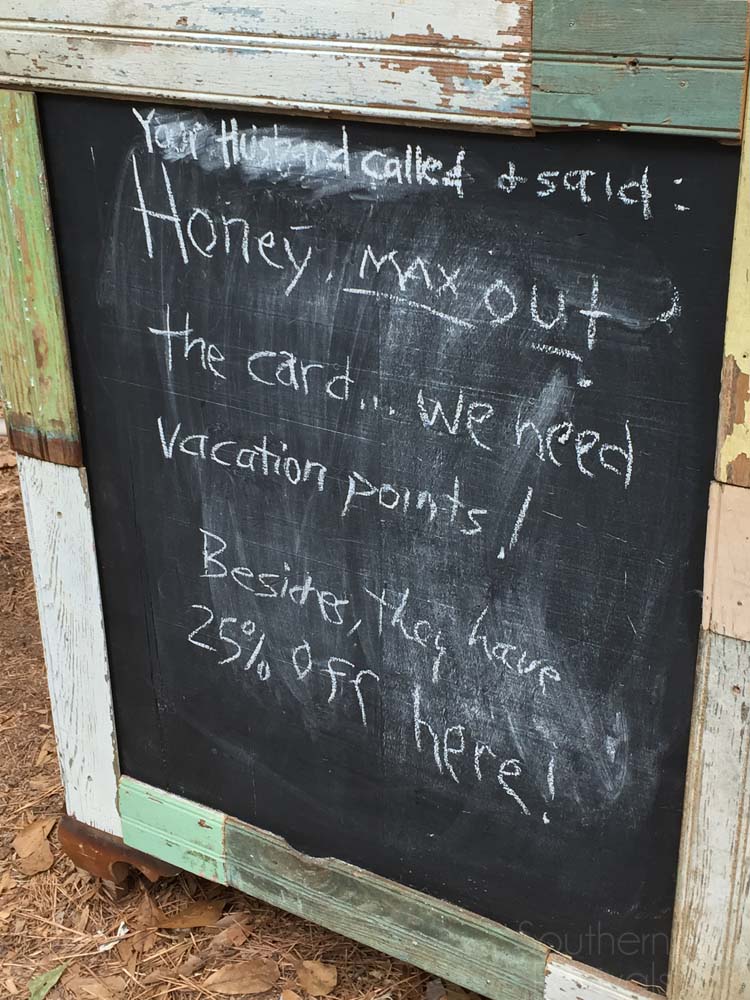 Your Husband called & said:
Honey, MAX out
the card... we need
vacation points!
Besides, they have
25% off here!
Southern